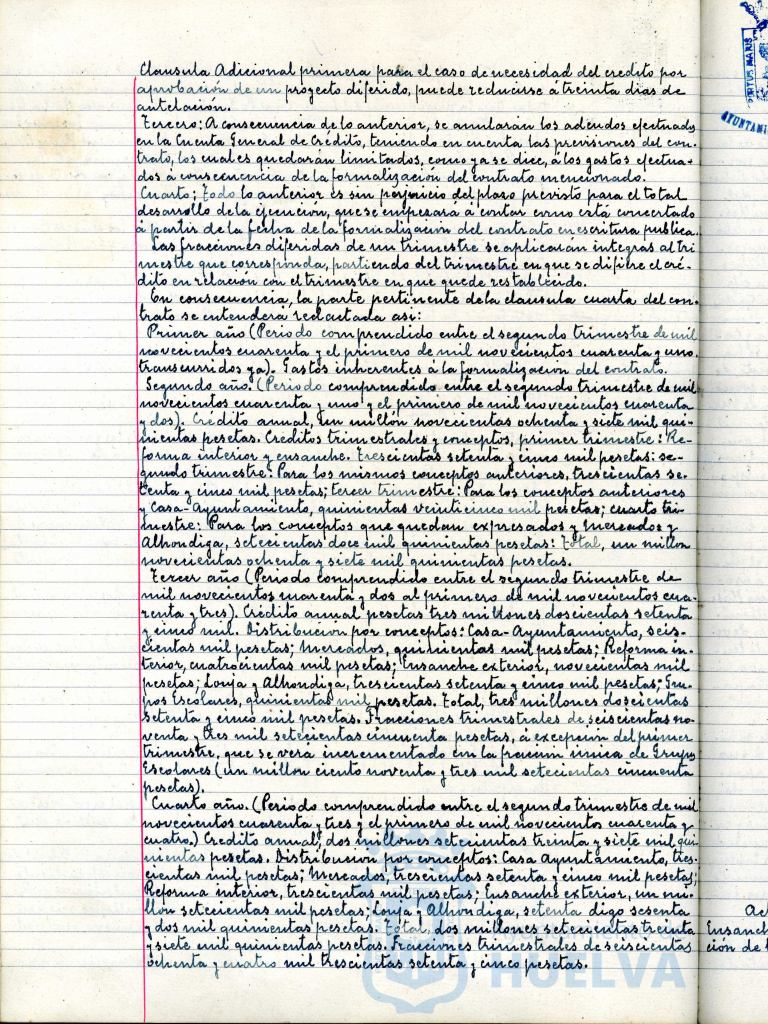 Clausula Adicional primera para el caso de necesidad del credito por
aprobación de un proyecto diferido, puede reducirse á treinta dias de
antelación.
Tercero: A consecuencia de lo anterior, se anularán los adeudos efectuados
en la Cuenta General de Crédito, teniendo en cuenta las previsiones del con-
trato, los cuales quedarán limitados, como ya se dice, á los gastos efectua-
dos á consecuencia de la formalización del contrato mencionado.
Cuarto: Todo lo anterior es sin perjuicio del plazo previsto para el total
desarrollo de la ejecucion, que se empezará á contar como está concertado
á partir de la fecha de la formalización del contrato en escritura publica.
Las fracciones diferidas de un trimestre se aplicarán integras al tri
mestre que corresponda, partiendo del trimestre en que se difiere el cré-
dito en relación con el trimestre en que quede restablecido.
En consecuencia, la parte pertinente de la clausula cuarta del con-
trato se entenderá redactada asi:
Primer año (Periodo comprendido entre el segundo trimestre de mil
novecientos cuarenta y el primero de mil novecientos cuarenta y uno
transcurridos ya). Gastos inherentes á la formalización del contrato.
Segundo año. (Periodo comprendido entre el segundo trimestre de mil
novecientos cuarenta y uno y el primero de mil novecientos cuarenta
y dos). Credito annual, un millón novecientas ochenta y siete mil qui-
nientas pesetas. Creditos trimestrales y conceptos, primer trimestre: Re-
forma interior y ensanche. Trescientas setenta y cinco mil pesetas: se-
gundo trimestre: Para los mismos conceptos anteriores, trescientas se-
tenta y cinco mil pesetas; tercer trimestre: Para los conceptos anteriores
y Casa-Ayuntamiento, quinientas veinticinco mil pesetas; cuarto tri-
mestre: Para los conceptos que quedan expresados y Mercados y
Alhondiga, setecientas doce mil quinientas pesetas: Total, un millon
novecientas ochenta y siete mil quinientas pesetas.
Tercer año (Periodo comprendido entre el segundo trimestre de
mil novecientos cuarenta y dos al primero de mil novecientos cua-
renta y tres). Crédito anual pesetas tres millones doscientas setenta
y cinco mil. Distribucion por conceptos: Casa-Ayuntamiento, seis-
cientas mil pesetas; Mercados, quinientas mil pesetas; Reforma in-
terior, cuatrocientas mil pesetas; Ensanche exterior, novecientas mil
pesetas; Lonja y Alhondiga, trescientas setenta y cinco mil pesetas; Gru-
pos Escolares, quinientas mil pesetas. Total, tres millones doscientas
setenta y cinco mil pesetas. Fracciones trimestrales de seiscientas no-
venta y tres mil setecientas cincuenta pesetas, á excepción del primer
trimestre, que se verá incrementado con la fraccion única de Grupos
Escolares (un millon ciento noventa y tres mil setecientas cincuenta
pesetas).
Cuarto año. (Periodo comprendido entre el segundo trimestre de mil
novecientos cuarenta y tres y el primero de mil novecientos cuarenta y
cuatro.) Credito annual, dos millones setecientas treinta y siete mil qui-
nientas pesetas. Distribucion por conceptos: Casa Ayuntamiento, tres-
cientas mil pesetas; Mercados, trescientas setenta y cinco mil pesetas;
Reforma interior, trescientas mil pesetas; Ensanche exterior, un mi-
llon setecientas mil pesetas; Lonja y Alhondiga, setenta digo sesenta
y dos mil quinientas pesetas. Total, dos millones setecientas treinta
y siete mil quinientas pesetas. Fracciones trimestrales de seiscientas
ochenta y cuatro mil trescientas setenta y cinco pesetas.
HUELVA
PORTUS MARIS
AYUNTAMI
Ensanch
ción de l